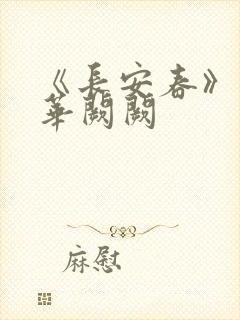 《長安春》
華闕闕
麻慰